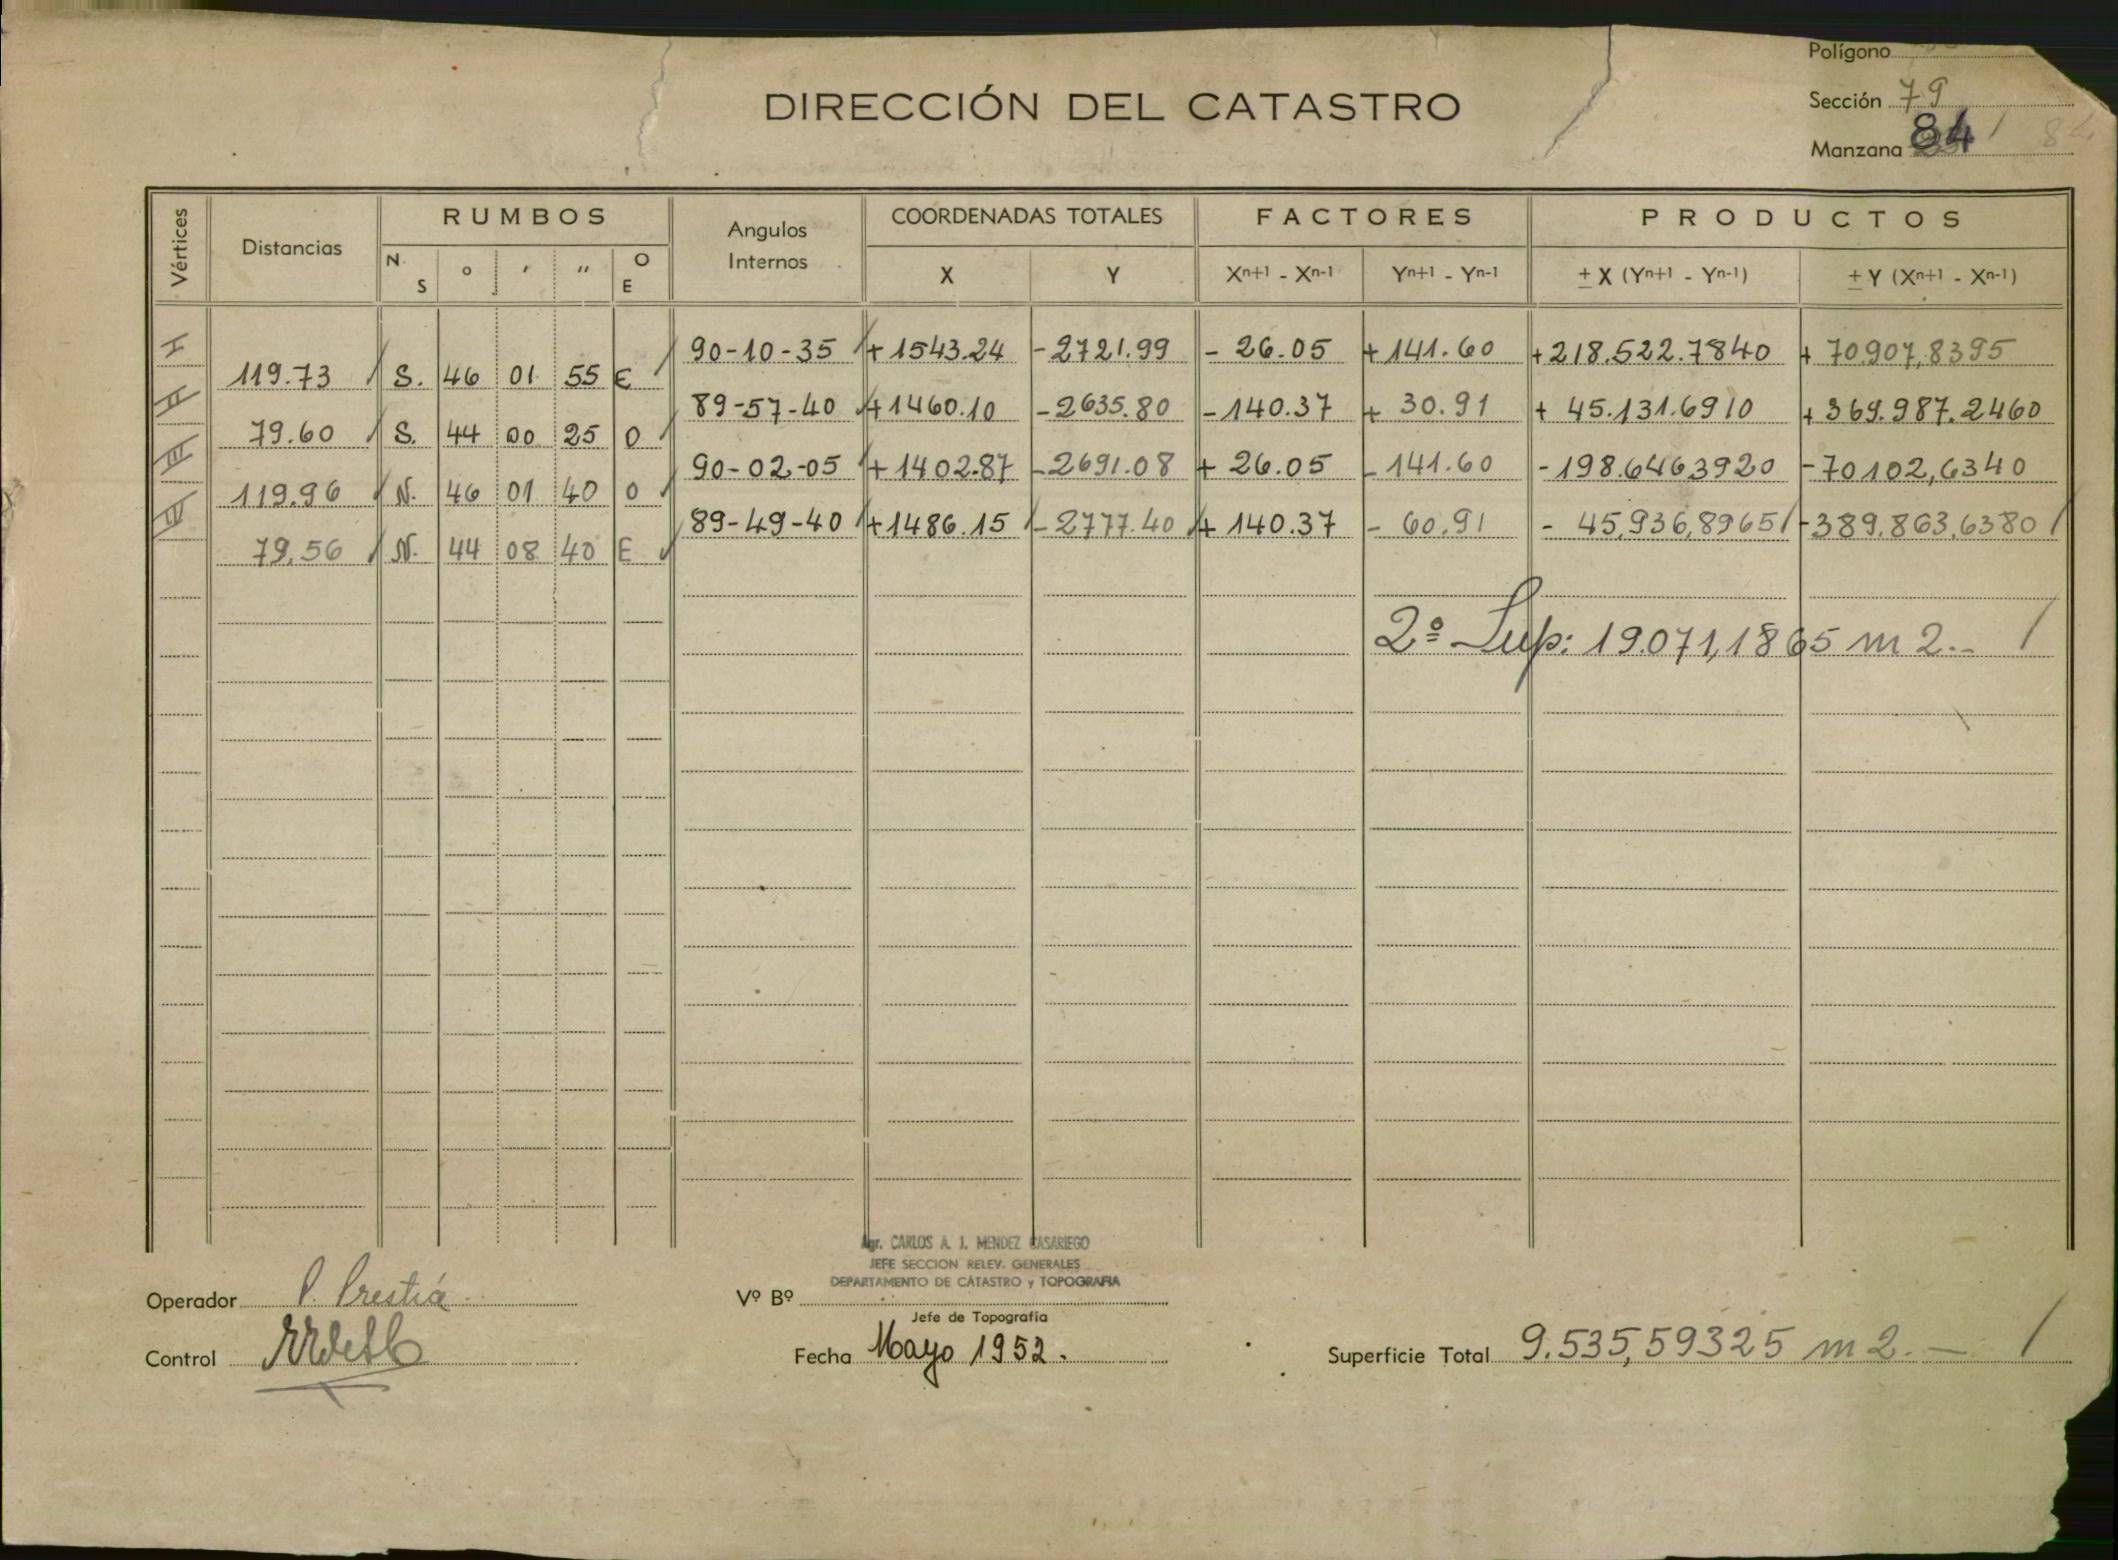 Polígono
DIRECCIÓN DEL CATASTRO
Sección 79
Manzana 84 / 84
Vértices
Distancias
RUMBOS
N. S
o
′
″
O E
Angulos Internos
COORDENADAS TOTALES
X
Y
FACTORES
Xn+1 - Xn-1
Yn+1 - Yn-1
PRODUCTOS
± X (Yn+1 - Yn-1)
± Y (Xn+1 - Xn-1)
I 90-10-35 +1543.24 -2721.99 - 26.05 +141.60 +218.522.7840 + 70.907,8395
119.73 S. 46 01 55 E
II 89-57-40 +1460.10 -2635.80 -140.37 + 30.91 + 45.131.6910 +369.987.2460
79.60 S. 44 00 25 O
III 90-02-05 +1402.87 -2691.08 + 26.05 -141.60 -198.646,3920 -70102,6340
119.96 N. 46 01 40 O
IV 89-49-40 +1486.15 -2777.40 + 140.37 - 60.91 - 45,936,8965 -389.863,6380
79.56 N. 44 08 40 E
2º Sup: 19.071,1865 m2.-
Agr. CARLOS A. J. MENDEZ CASARIEGO
JEFE SECCION RELEV. GENERALES
DEPARTAMENTO DE CATASTRO y TOPOGRAFIA
Operador P. Prestiá
Vº Bº
Jefe de Topografía
Control
Fecha Mayo 1952.
Superficie Total 9.535,59325 m2.-